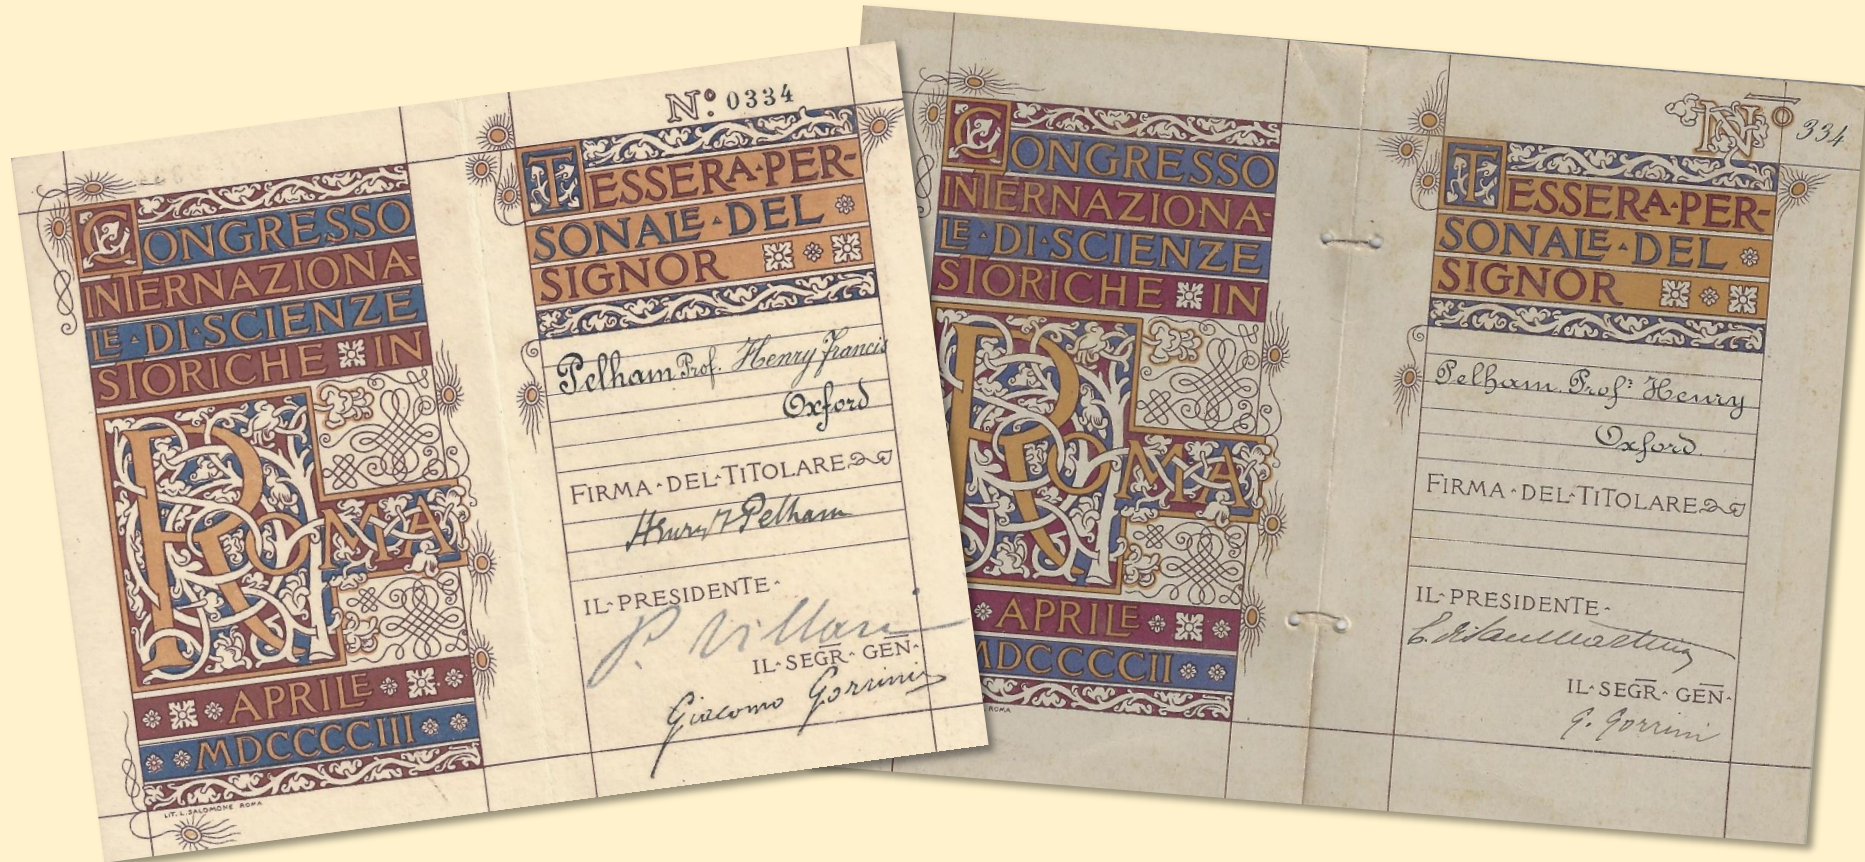 CONGRESSO
INTERNAZIONA-
LE·DI·SCIENZE
STORICHE IN
ROMA
APRILE
MDCCCCIII
LIT. L. SALOMONE ROMA
Nº 0334
TESSERA·PER-
SONALE·DEL
SIGNOR
Pelham Prof. Henry Francis
Oxford
FIRMA·DEL·TITOLARE
Henry F Pelham
IL·PRESIDENTE·
P. Villari
IL·SEGR·GEN·
Giacomo Gorrini
CONGRESSO
INTERNAZIONA-
LE·DI·SCIENZE
STORICHE IN
ROMA
APRILE
MDCCCCII
ROMA
Nº 334
TESSERA·PER-
SONALE·DEL
SIGNOR
Pelham Prof: Henry
Oxford.
FIRMA·DEL·TITOLARE
IL·PRESIDENTE·
IL·SEGR·GEN·
G. Gorrini